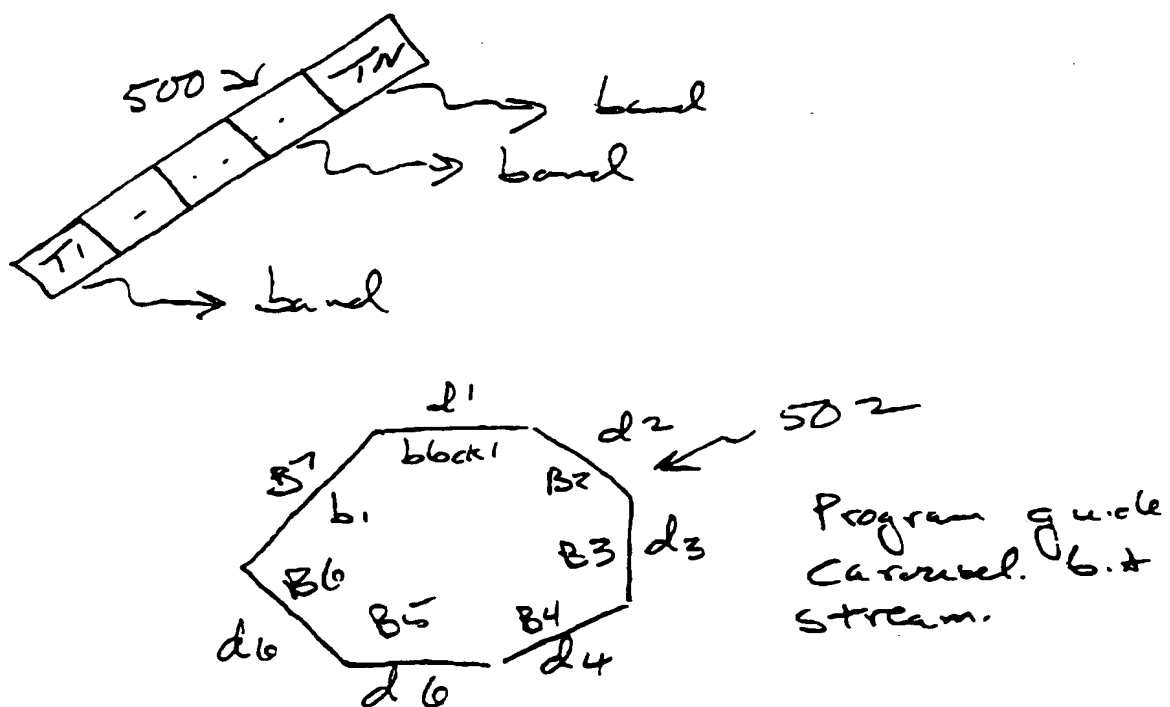 500
TN
T1
band
band
band
d1
block1
d2
502
B7
b1
B2
B3
d3
B6
B5
B4
d6
d6
d4
Program guide
Carousel. bit
stream.